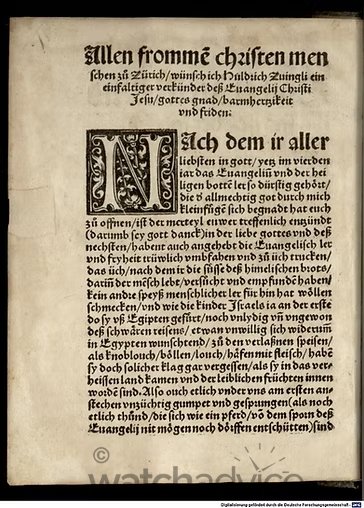 Allen frommē christen men
schen zů Zürich/ wünsch ich Huldrich Zuingli ein
einfaltiger verkünder deß Euangelij Christi
Jesu/ gottes gnad/ barmhertzikeit
vnd friden:
NAch dem ir aller
liebsten in gott/ yetz im vierden
iar das Euangeliū vnd der hei
ligen bottē ler so dürstig gehört/
die ð allmechtig got durch mich
kleinfüge sich begnadt hat euch
zů offnen/ ist der merteyl euwer treffenlich entzündt
(darumb sey gott danck) in der liebe gottes vnd deß
nechsten/ habent auch angehebt die Euangelisch ler
vnd fryheit trüwlich vmbfahen vnd zů üch trucken/
das üch/ nach dem ir die süsse deß himelischen brots/
darin der mēsch lebt/ versůcht vnd empfundē haben/
kein andre speyß menschlicher ler für hin hat wöllen
schmecken/ vnd wie die kinder Jsraels ia an der erste
do sy vß Egipten gefürt/ noch vnlydig vñ vngewon
deß schwären reisens/ etwan vnwillig sich widerum
in Egypten wunschtend/ zů den verlaßnen speisen/
als knoblouch/ böllen/ louch/ häfen mit fleisch/ habē
sy doch solicher klag gar vergessen/ als sy in das ver-
heissen land kamen vnd der leiblichen früchten innen
wordē sind. Also ouch etlich vnder vns am ersten an-
stechen vnzüchtig gumpet vnd gesprungen (als noch
etlich thůnd/ die sich wie ein pferd/ vō dem sporn deß
Euangelij nit mögen noch dörffen entschütten) sind
© watchadvice
Digitalisierung gefördert durch die Deutsche Forschungsgemeinschaft - DFG